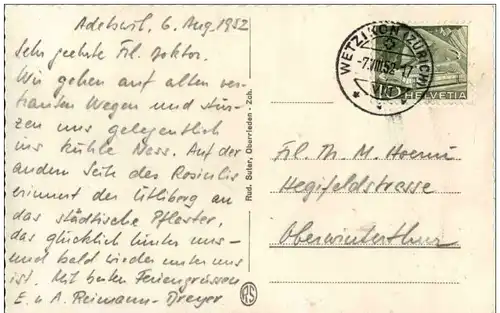 Adetswil, 6. Aug. 1952
Sehr geehrte Frl. Doktor.
Wir gehen auf alten ver-
trauten Wegen und stür-
zen uns gelegentlich
ins kühle Nass. Auf der
andern Seite des Rosinlis
erinnert der Ütliberg an
das städtische Pflaster,
das glücklich hinter uns –
und bald wieder unter uns
ist. Mit besten Feriengrüssen
E. u A. Reimann-Dreyer
Rud. Suter, Oberrieden - Zch.
RS
WETZIKON (ZÜRICH)
-7.VIII.52-17
10
HELVETIA
Frl. Th. M. Hoerni
Hegifeldstrasse
Oberwinterthur